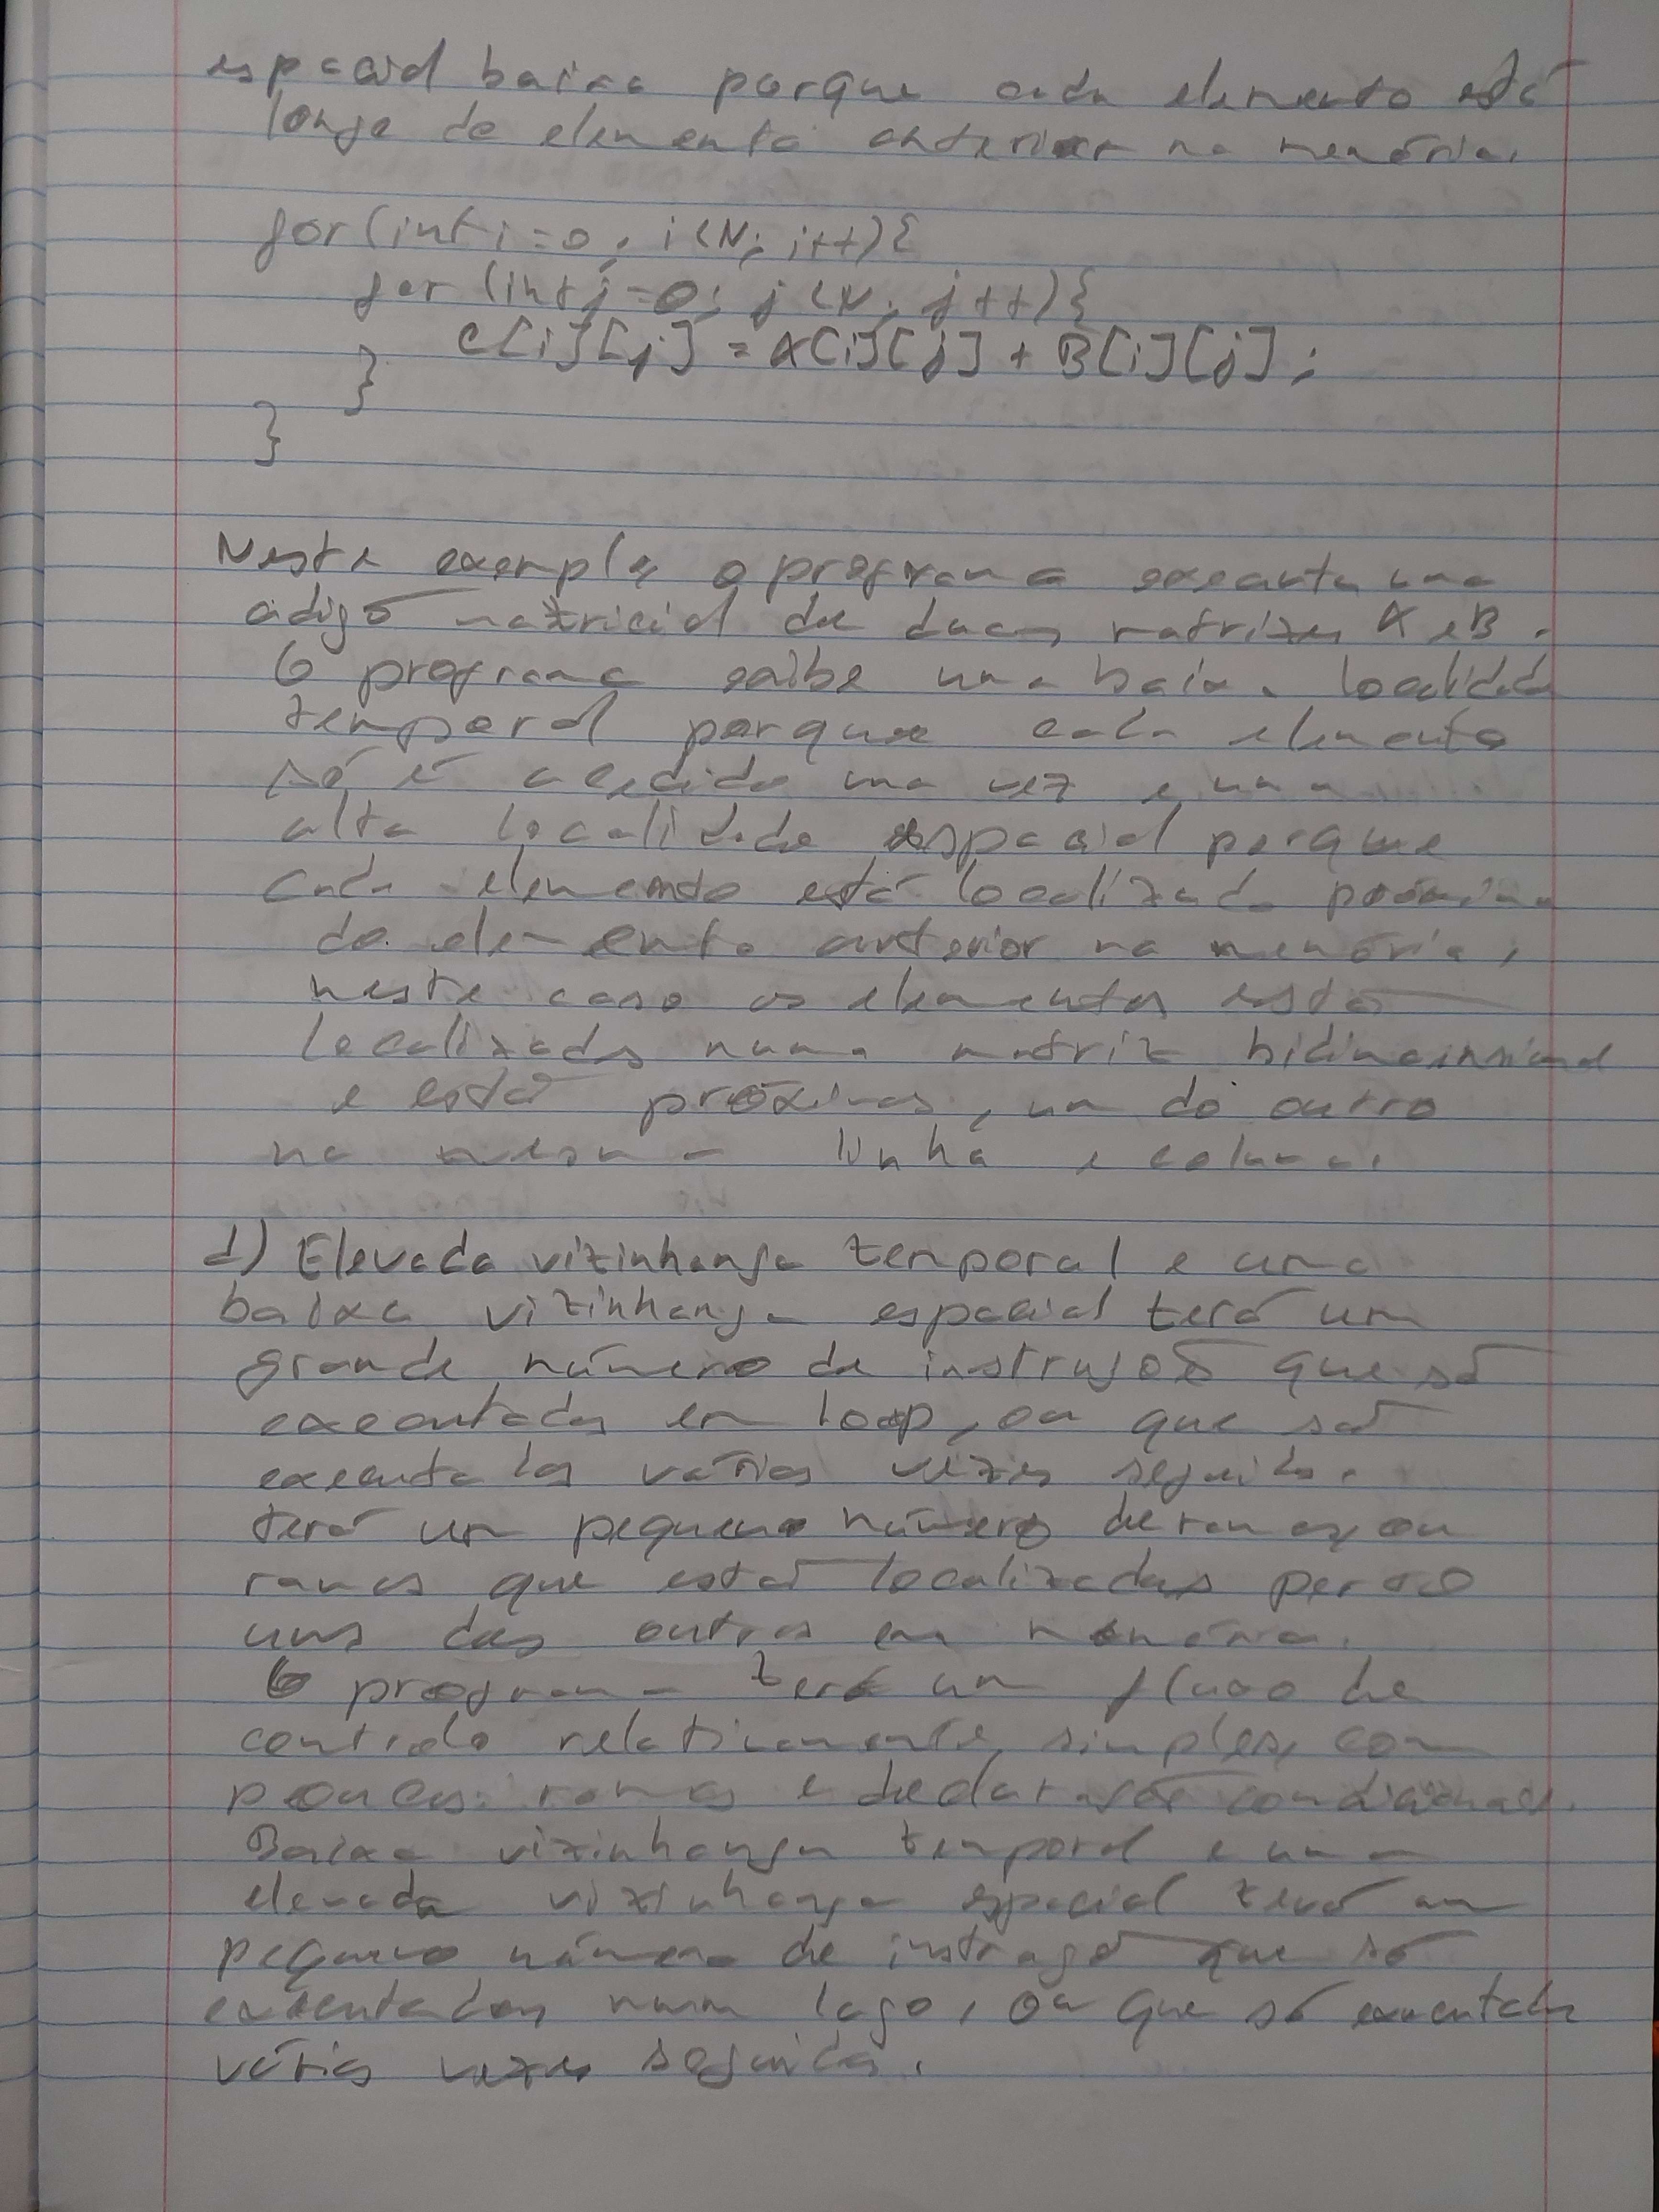 espacial baixa porque cada elemento está
longe do elemento anterior na memória.
for(int i=0; i<N; i++){
for (int j=0; j<N; j++){
C[i][j] = A[i][j] + B[i][j];
}
}
Neste exemplo, o programa executa uma
adição matricial de duas matrizes A e B.
O programa exibe uma baixa localidade
temporal porque cada elemento
só é acedido uma vez e uma
alta localidade espacial porque
cada elemento está localizado próximo
do elemento anterior na memória,
neste caso os elementos estão
localizados numa matriz bidimensional
e estão próximos, um do outro
na mesma linha e coluna.
d) Elevada vizinhança temporal e uma
baixa vizinhança espacial terá um
grande número de instruções que são
executadas em loop, ou que são
executadas várias vezes seguidas.
terá um pequeno número de ramos, ou
ramos que estão localizados perto
uns dos outros em memória.
O programa terá um fluxo de
controlo relativamente simples, com
poucos ramos e declarações condicionais.
Baixa vizinhança temporal e uma
elevada vizinhança espacial terá um
pequeno número de instruções que são
executadas num laço, ou que são executadas
várias vezes seguidas.